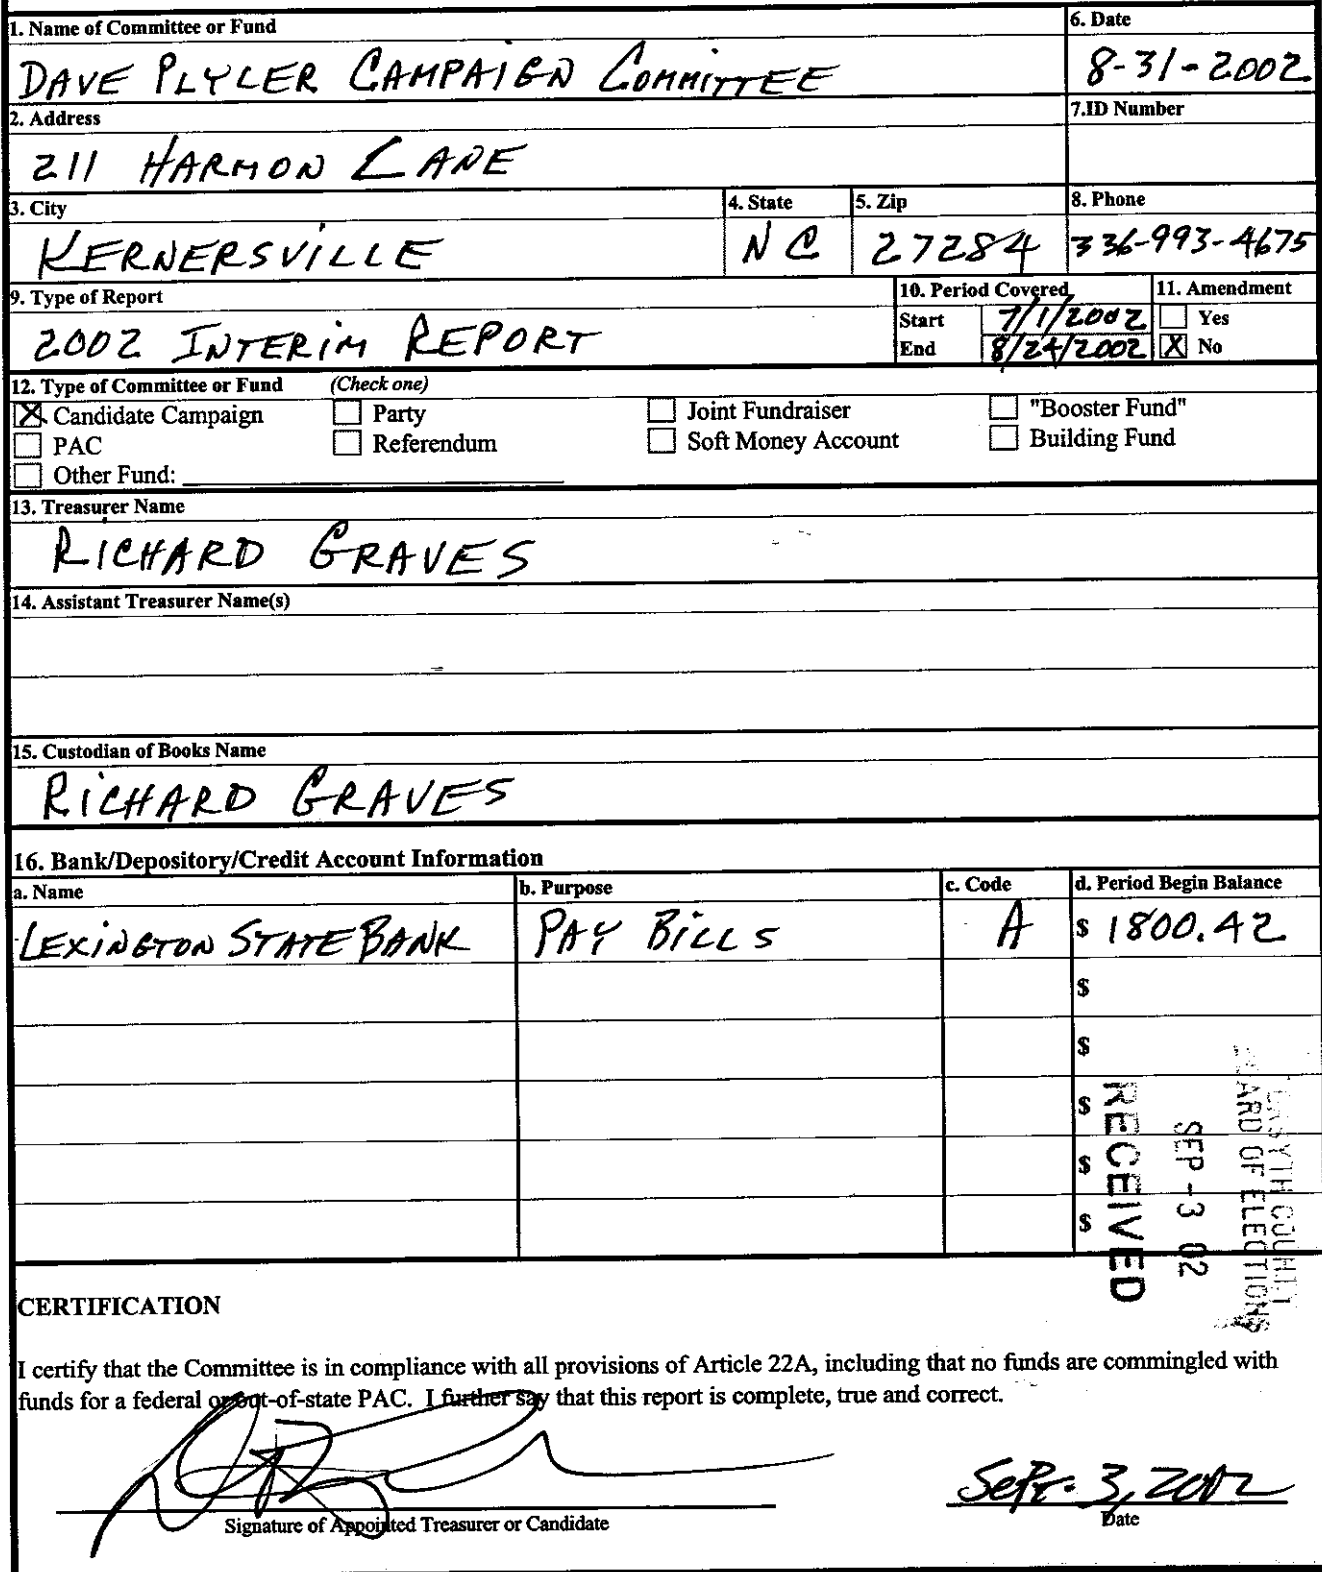 1. Name of Committee or Fund
DAVE PLYLER CAMPAIGN COMMITTEE
6. Date
8-31-2002
2. Address
211 HARMON LANE
7.ID Number
3. City
KERNERSVILLE
4. State
NC
5. Zip
27284
8. Phone
336-993-4675
9. Type of Report
2002 INTERIM REPORT
10. Period Covered
Start 7/1/2002
End 8/24/2002
11. Amendment
Yes
X No
12. Type of Committee or Fund (Check one)
X Candidate Campaign Party Joint Fundraiser "Booster Fund"
PAC Referendum Soft Money Account Building Fund
Other Fund:
13. Treasurer Name
RICHARD GRAVES
14. Assistant Treasurer Name(s)
15. Custodian of Books Name
RICHARD GRAVES
16. Bank/Depository/Credit Account Information
a. Name b. Purpose c. Code d. Period Begin Balance
LEXINGTON STATE BANK PAY BILLS A $ 1800.42
$
$
$
$
$
RECEIVED
SEP -3 02
COUNTY
OF ELECTIONS
CERTIFICATION
I certify that the Committee is in compliance with all provisions of Article 22A, including that no funds are commingled with
funds for a federal or out-of-state PAC. I further say that this report is complete, true and correct.
Sept. 3, 2002
Signature of Appointed Treasurer or Candidate Date